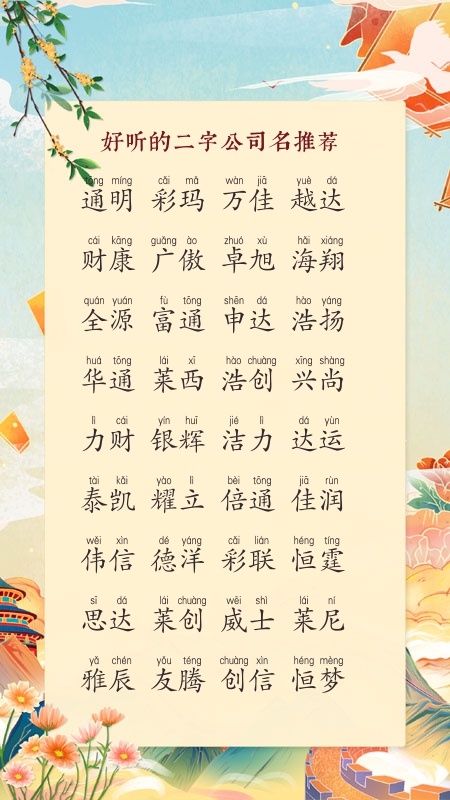 好听的二字公司名推荐
tōng míng cǎi mǎ wàn jiā yuè dá
通明 彩玛 万佳 越达
cái kāng guǎng ào zhuó xù hǎi xiáng
财康 广傲 卓旭 海翔
quán yuán fù tōng shēn dá hào yáng
全源 富通 申达 浩扬
huá tōng lái xī hào chuàng xīng shàng
华通 莱西 浩创 兴尚
lì cái yín huī jié lì dá yùn
力财 银辉 洁力 达运
tài kǎi yào lì bèi tōng jiā rùn
泰凯 耀立 倍通 佳润
wěi xìn dé yáng cǎi lián héng tíng
伟信 德洋 彩联 恒霆
sī dá lái chuàng wēi shì lái ní
思达 莱创 威士 莱尼
yǎ chén yǒu téng chuàng xìn héng mèng
雅辰 友腾 创信 恒梦